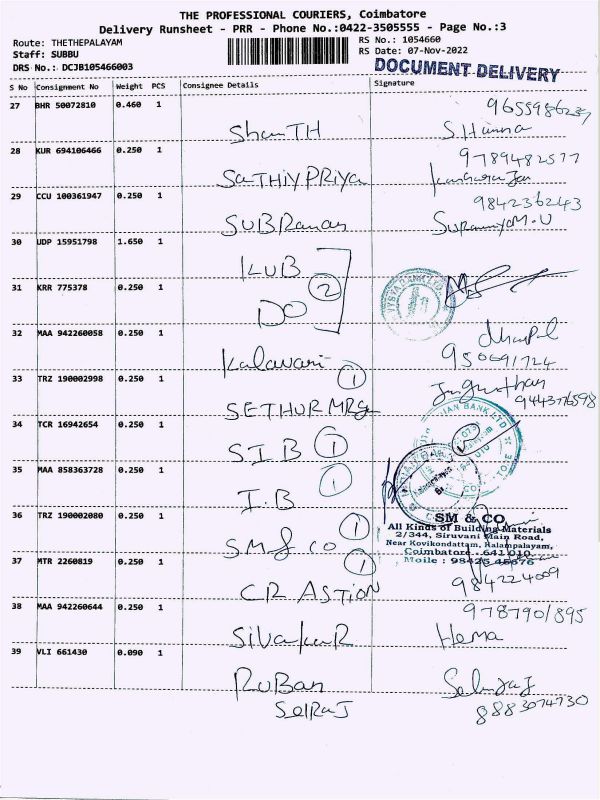 THE PROFESSIONAL COURIERS, Coimbatore
Delivery Runsheet - PRR - Phone No.:0422-3505555 - Page No.:3
Route: THETHEPALAYAM RS No.: 1054660
Staff: SUBBU RS Date: 07-Nov-2022
DRS No.: DCJB105466003 DOCUMENT DELIVERY
S No Consignment No Weight PCS Consignee Details Signature
27 BHR 50072810 0.460 1
ShanTH S.Hanna
28 KUR 694106466 0.250 1 9789482577
SaTHiy PRiya
29 CCU 100361947 0.250 1 984236243
SUBRanan
30 UDP 15951798 1.650 1
KUB
31 KRR 775378 0.250 1 2
DO
32 MAA 942260058 0.250 1
Kalavani 950691724
33 TRZ 190002998 0.250 1 1
SETHUR MRgn 9443776598
34 TCR 16942654 0.250 1
SIB 1
35 MAA 858363728 0.250 1 1
I.B
36 TRZ 190002080 0.250 1 1
SM & CO
SM & CO
All Kinds of Building Materials
2/344, Siruvani Main Road,
Near Kovikondattam, Kalampalayam,
Coimbatore - 641 010
Moile : 98425 45676
37 MTR 2260819 0.250 1 1
CR ASTION 984224009
38 MAA 942260644 0.250 1 9787901895
SivakuR Hema
39 VLI 661430 0.090 1
RuBan
SelRaJ 8883074730